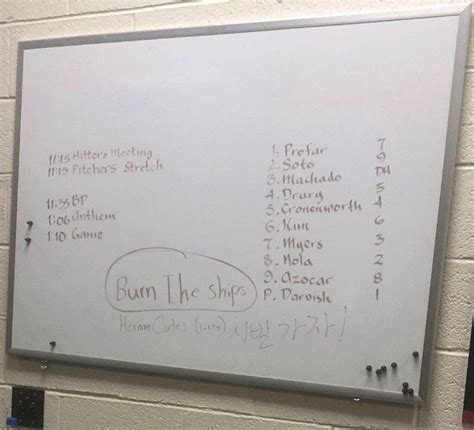 11:15 Hitters Meeting
11:15 Pitchers Stretch
11:35 BP
1:06 Anthem
1:10 Game
1. Profar 7
2. Soto 9
3. Machado DH
4. Drury 5
5. Cronenworth 4
6. Kim 6
7. Myers 3
8. Nola 2
9. Azocar 8
P. Darvish 1
Burn The ships
Hernan Cortes 가자!